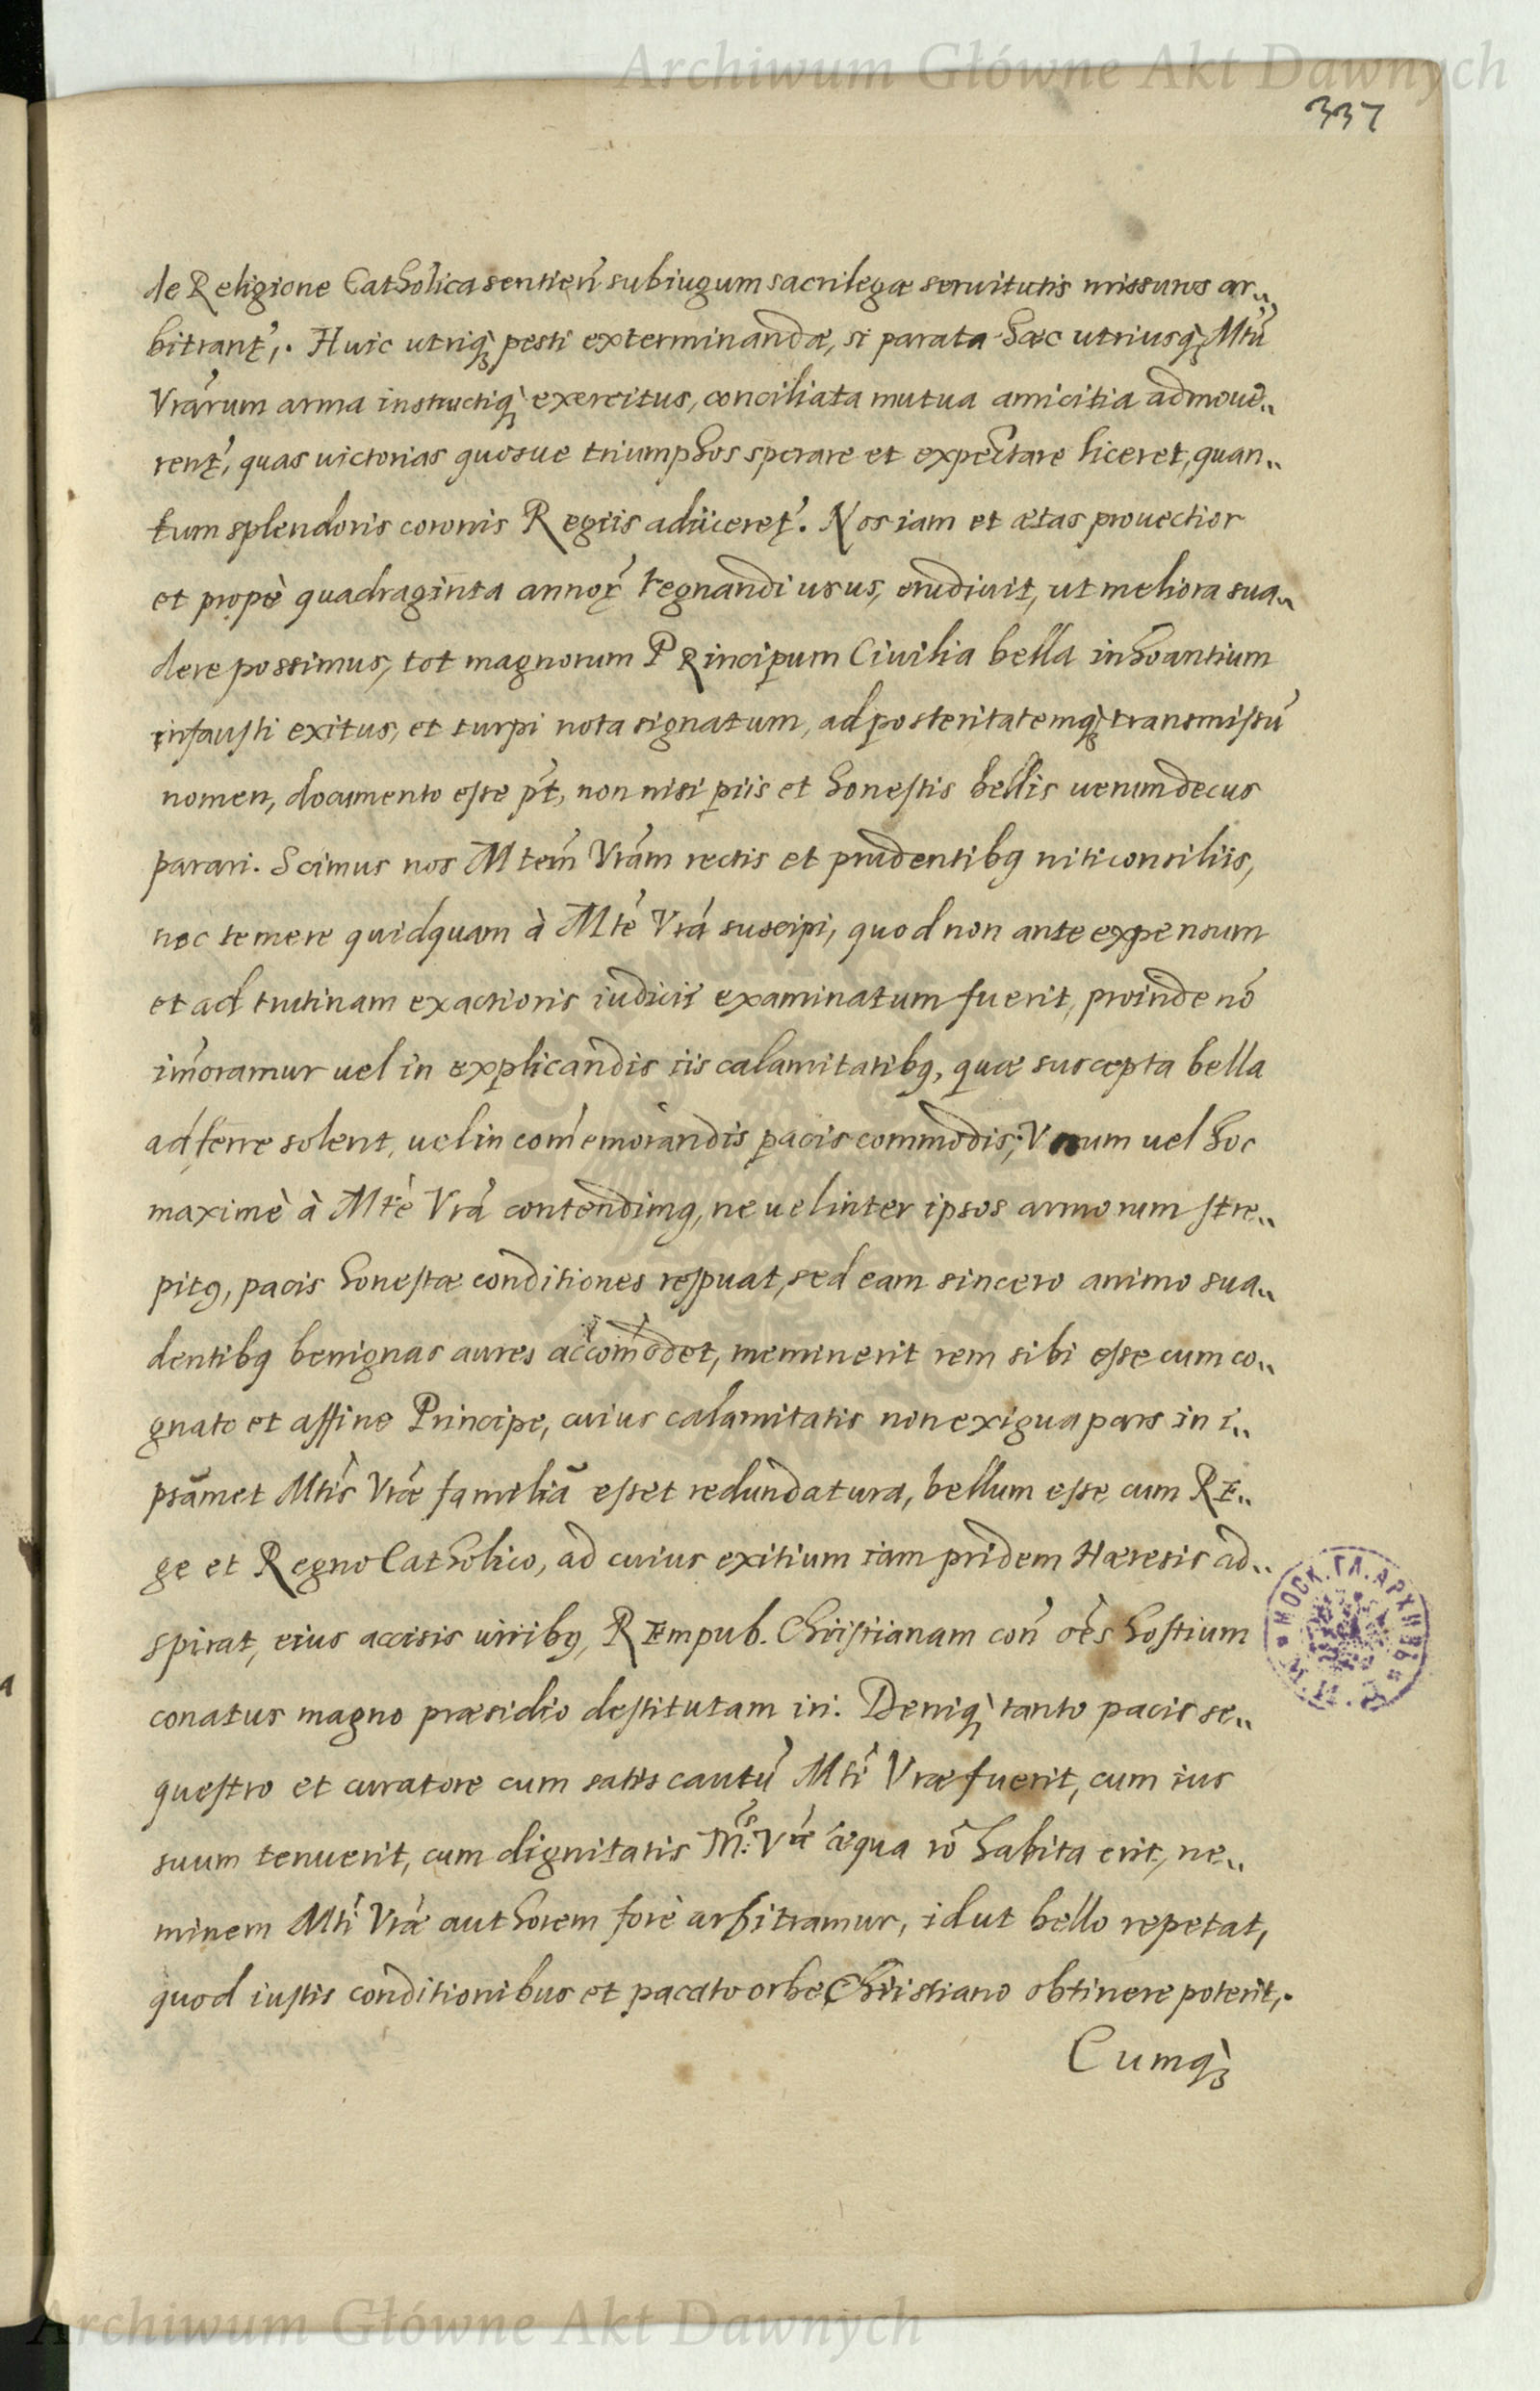 Archiwum Główne Akt Dawnych
337
de Religione Catholica sentien̄ sub iugum sacrilegæ seruitutis missuros ar„
bitrant̃,. Huic utriq̀ꝫ pesti exterminandæ, si parata hæc utriusq̀ꝫ Mtũ
Vrárum arma instructiq̀ꝫ exercitus, conciliata mutua amicitia admoue„
rent̃, quas uictorias quosue triumphos sperare et expectare liceret, quan„
tum splendoris coronis Regiis adiiceret̃. Nos iam et ætas prouectior
et propè quadraginta annoꝝ regnandi usus, erudiuit, ut meliora sua„
dere possimus, tot magnorum PRincipum Ciuilia bella inhoantium
infausti exitus, et turpi nota signatum, ad posteritatemq̀ꝫ transmissũ
nomen, documento esse pt̃, non nisi piis et honestis bellis uerum decus
parari. Scimus nos Mtem̃ Vrám rectis et prudentibꝯ niti consiliis,
nec temere quidquam à Mtẽ Vrá suscipi, quod non ante expensum
et ad trutinam exactioris iudicii examinatum fuerit, proinde nõ
im̃oramur uel in explicandis iis calamitatibꝯ, quæ suscepta bella
adferre solent, uel in com̃emorandis pacis commodis; Verum uel hoc
maximè à Mtẽ Vrá contendimꝯ, ne uel inter ipsos armorum stre„
pitꝯ, pacis honestæ conditiones respuat, sed eam sincero animo sua„
dentibꝯ benignas aures accom̃odet, meminerit rem sibi esse cum co„
gnato et affine Principe, cuius calamitatis non exigua pars in i„
psãmet Mtis̃ Vræ familiã esset redundatura, bellum esse cum RE„
ge et Regno Catholico, ad cuius exitium iam pridem Hæresis ad„
spirat, eius accisis uiribꝯ, REmpub. Christianam con̄ oẽs hostium
conatus magno præsidio destitutam iri. Deniq̀ꝫ tanto pacis se„
questro et curatore cum satis cautũ Mti̇̃ Vræ fuerit, cum ius
suum tenuerit, cum dignitatis M:tis Vræ æqua rõ habita erit, ne„
minem Mtĩ Vræ authorem forè arbitramur, id ut bello repetat,
quod iustis conditionibus et pacato orbe Christiano obtinere poterit,.
Cumq̀ꝫ
МОСК. ГЛ. АРХИВЪ
Archiwum Główne Akt Dawnych